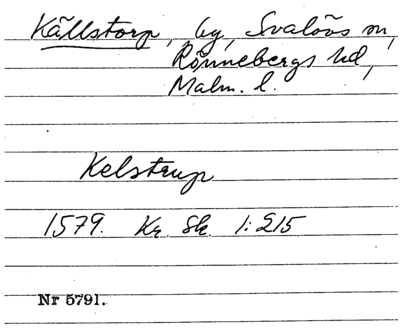 Källstorp, by, Svalövs sn,
Rönnebergs hd,
Malm. l.
Kelstrup
1579. Kr. Sk. 1:215
Nr 5791.